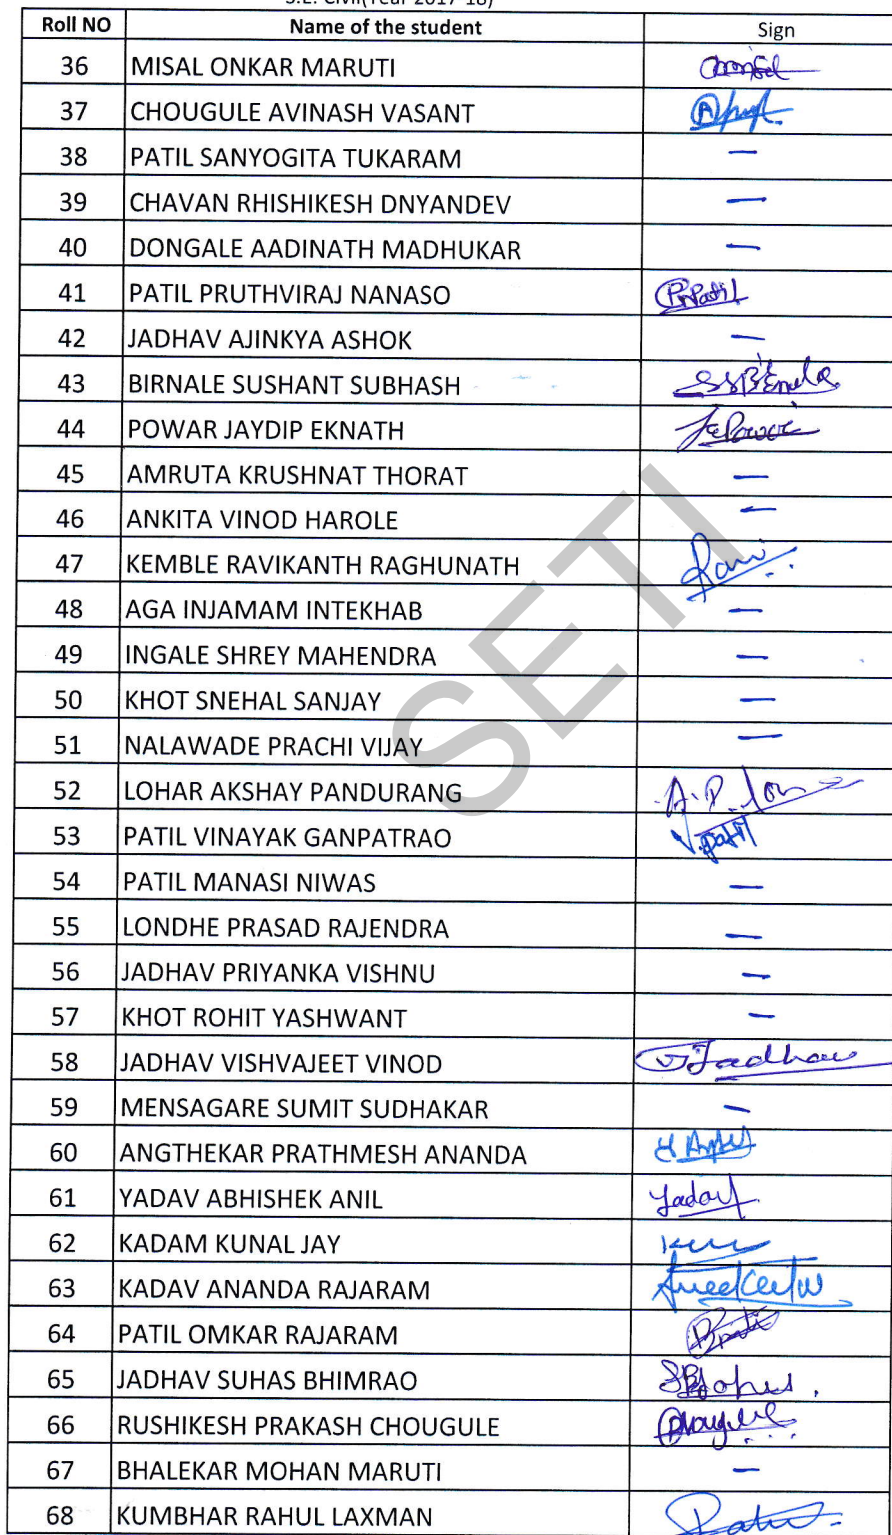 S.E. Civil(Year 2017-18)
Roll NO Name of the student Sign
36 MISAL ONKAR MARUTI
37 CHOUGULE AVINASH VASANT
38 PATIL SANYOGITA TUKARAM —
39 CHAVAN RHISHIKESH DNYANDEV —
40 DONGALE AADINATH MADHUKAR —
41 PATIL PRUTHVIRAJ NANASO PNPatil
42 JADHAV AJINKYA ASHOK —
43 BIRNALE SUSHANT SUBHASH
44 POWAR JAYDIP EKNATH
45 AMRUTA KRUSHNAT THORAT —
46 ANKITA VINOD HAROLE —
47 KEMBLE RAVIKANTH RAGHUNATH Ravi
48 AGA INJAMAM INTEKHAB —
49 INGALE SHREY MAHENDRA —
50 KHOT SNEHAL SANJAY —
51 NALAWADE PRACHI VIJAY —
52 LOHAR AKSHAY PANDURANG
53 PATIL VINAYAK GANPATRAO V.patil
54 PATIL MANASI NIWAS —
55 LONDHE PRASAD RAJENDRA —
56 JADHAV PRIYANKA VISHNU —
57 KHOT ROHIT YASHWANT —
58 JADHAV VISHVAJEET VINOD VJadhav
59 MENSAGARE SUMIT SUDHAKAR —
60 ANGTHEKAR PRATHMESH ANANDA
61 YADAV ABHISHEK ANIL Yadav
62 KADAM KUNAL JAY
63 KADAV ANANDA RAJARAM
64 PATIL OMKAR RAJARAM
65 JADHAV SUHAS BHIMRAO
66 RUSHIKESH PRAKASH CHOUGULE
67 BHALEKAR MOHAN MARUTI —
68 KUMBHAR RAHUL LAXMAN
SETI